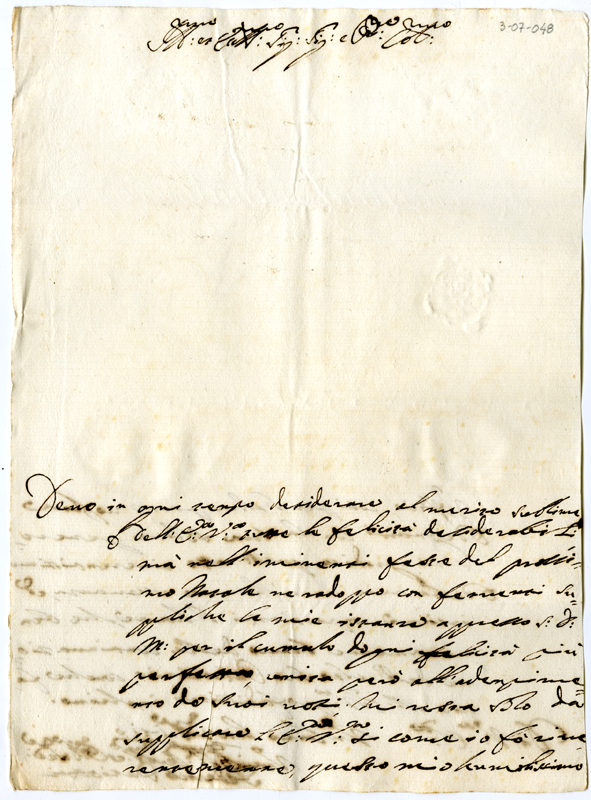 Ill:mo et Ecc:mo Sig: Sig: e P͠ro͠n Col:mo
3-07-048
Devo in ogni tempo desiderare al merito sublime
dell'E:za V:ra tutte le felicità desiderabili
mà nell'iminenti feste del prossi-
mo Natale ne radoppo con ferventi su-
ppliche le mie istanze appresso S: D:
M: per il cumulo d'ogni felicità più
perfetta, unita però all'adempime-
nto de suoi voti. Mi resta solo da
supplicare l'E:za V:ra si come io fò rive
rentemente, questo mio humilissimo